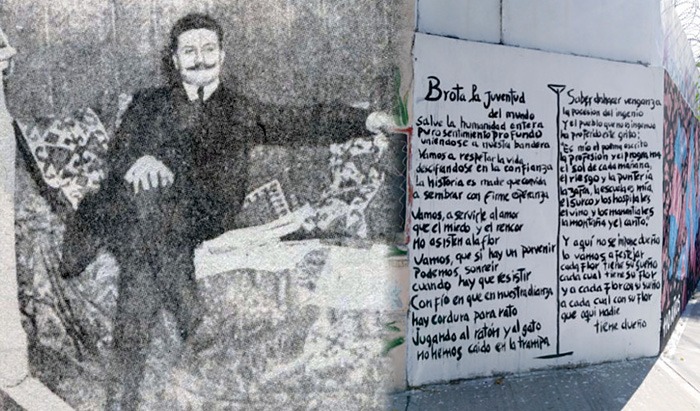 Brota la Juventud
del mundo
salve la humanidad entera
puro sentimiento profundo
uniéndose a nuestra bandera
Vamos a respetar la vida
descifandose en la confianza
la historia es madre que convida
a sembrar con firme esperanza
Vamos, a servirle al amor
que el miedo y el rencor
no asisten a la flor
Vamos, que si hay un porvenir
Podemos, sonreir
cuando hay que resistir
Confío en que en nuestra alianza
hay cordura para rato
Jugando al ratón y al gato
no hemos caido en la trampa
Saber deshacer venganza
la posesion del ingenio
y el pueblo que no es ingenuo
ha proferido este grito:
"Es mío el poema escrito
la profesión y el programa
el sol de cada mañana,
el riesgo y la puntería
la zafra, la escuela es mía
el surco y los hospitales
el vino y los manantiales
la montaña y el canto."
Y aquí no se impone dueño
lo vamos a festejar
cada flor tiene su sueño
cada cual tiene su flor
y a cada flor con su sueño
a cada cual con su flor
que aquí nadie
tiene dueño